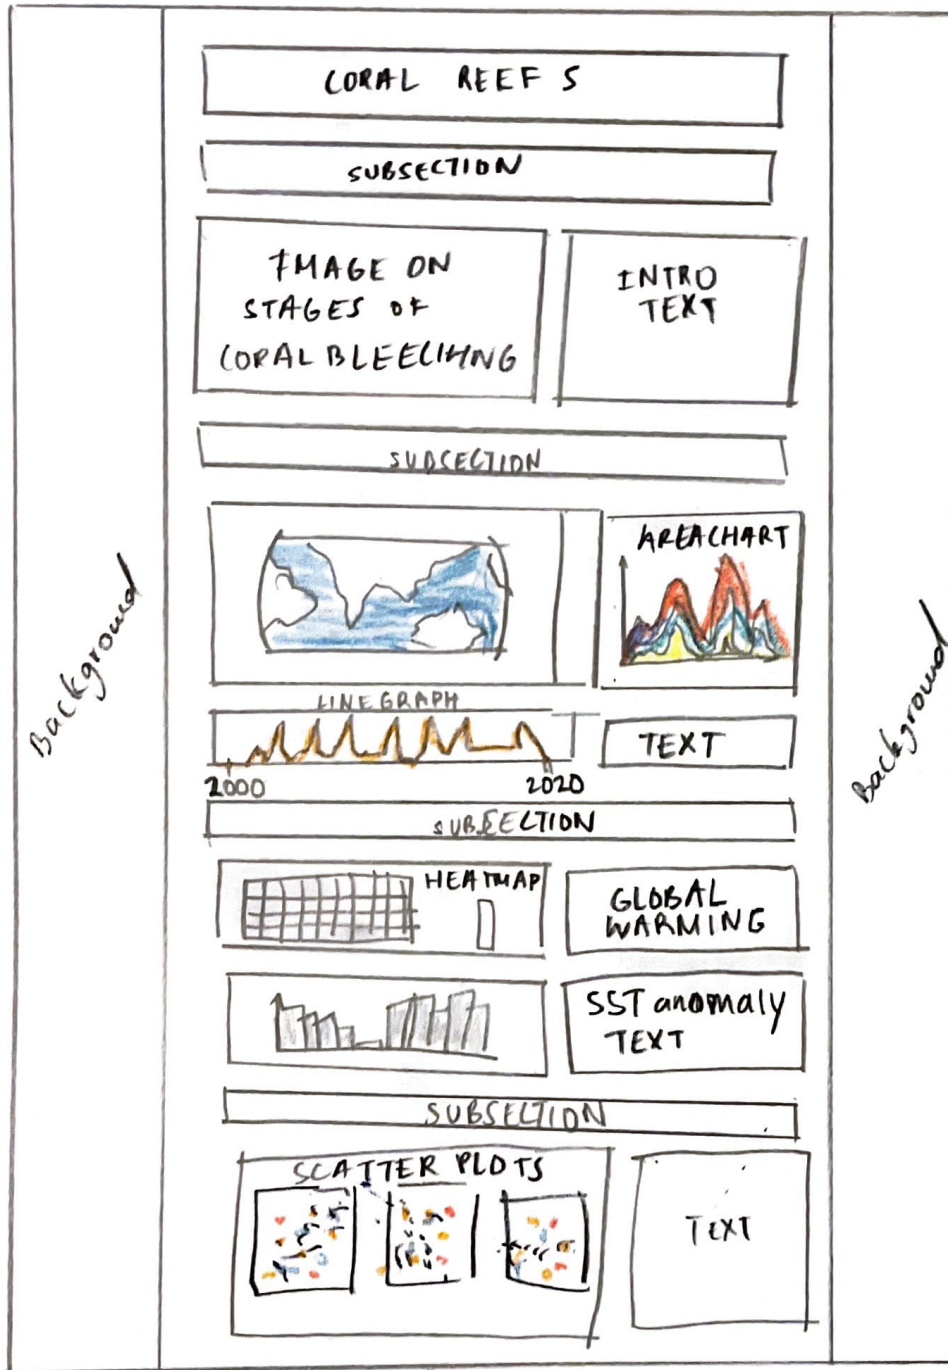 CORAL REEFS
SUBSECTION
IMAGE ON
STAGES OF
CORAL BLEECIHNG
INTRO
TEXT
SUBSECTION
AREA CHART
LINE GRAPH
2000
2020
TEXT
SUBSECTION
HEATMAP
GLOBAL
WARMING
SST anomaly
TEXT
SUBSECTION
SCATTER PLOTS
TEXT
Background
Background